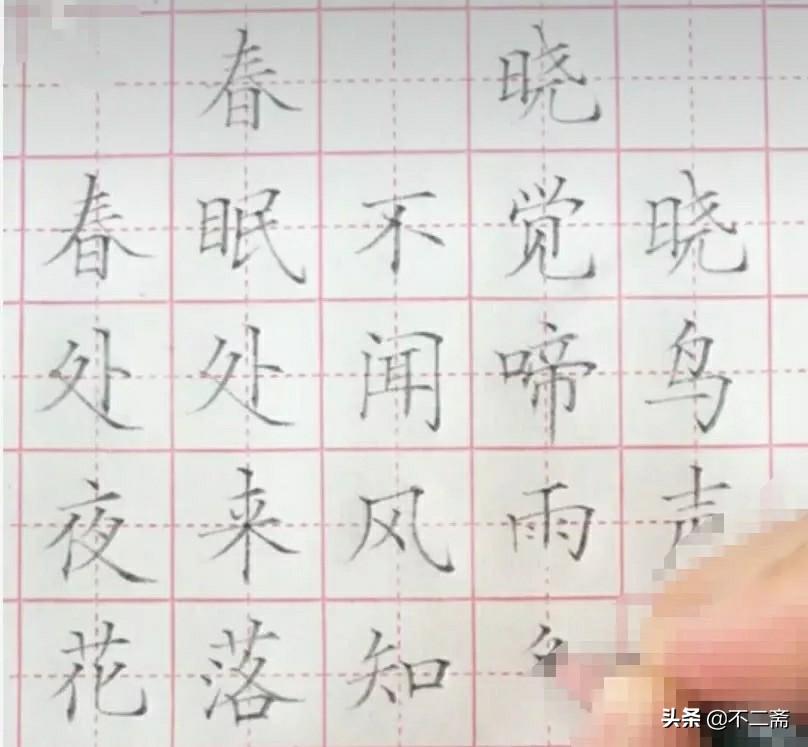 春 晓
春眠不觉晓
处处闻啼鸟
夜来风雨声
花落知
头条 @不二斋